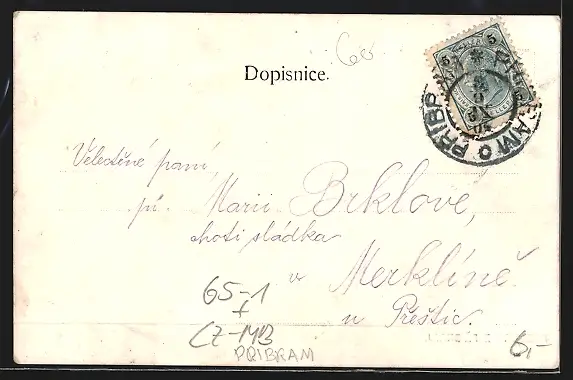 60
Dopisnice.
5 5
PŘIBRAM PŘIBRAM
Velectěné paní,
pí. Marii Brklové,
choti sládka
v Merklíně
u Přeštic.
65-1
+
CZ-MB
PRIBRAM
6,-